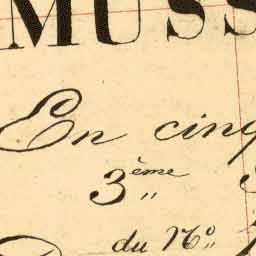 MUSS
En cinq
3ème „
du No „